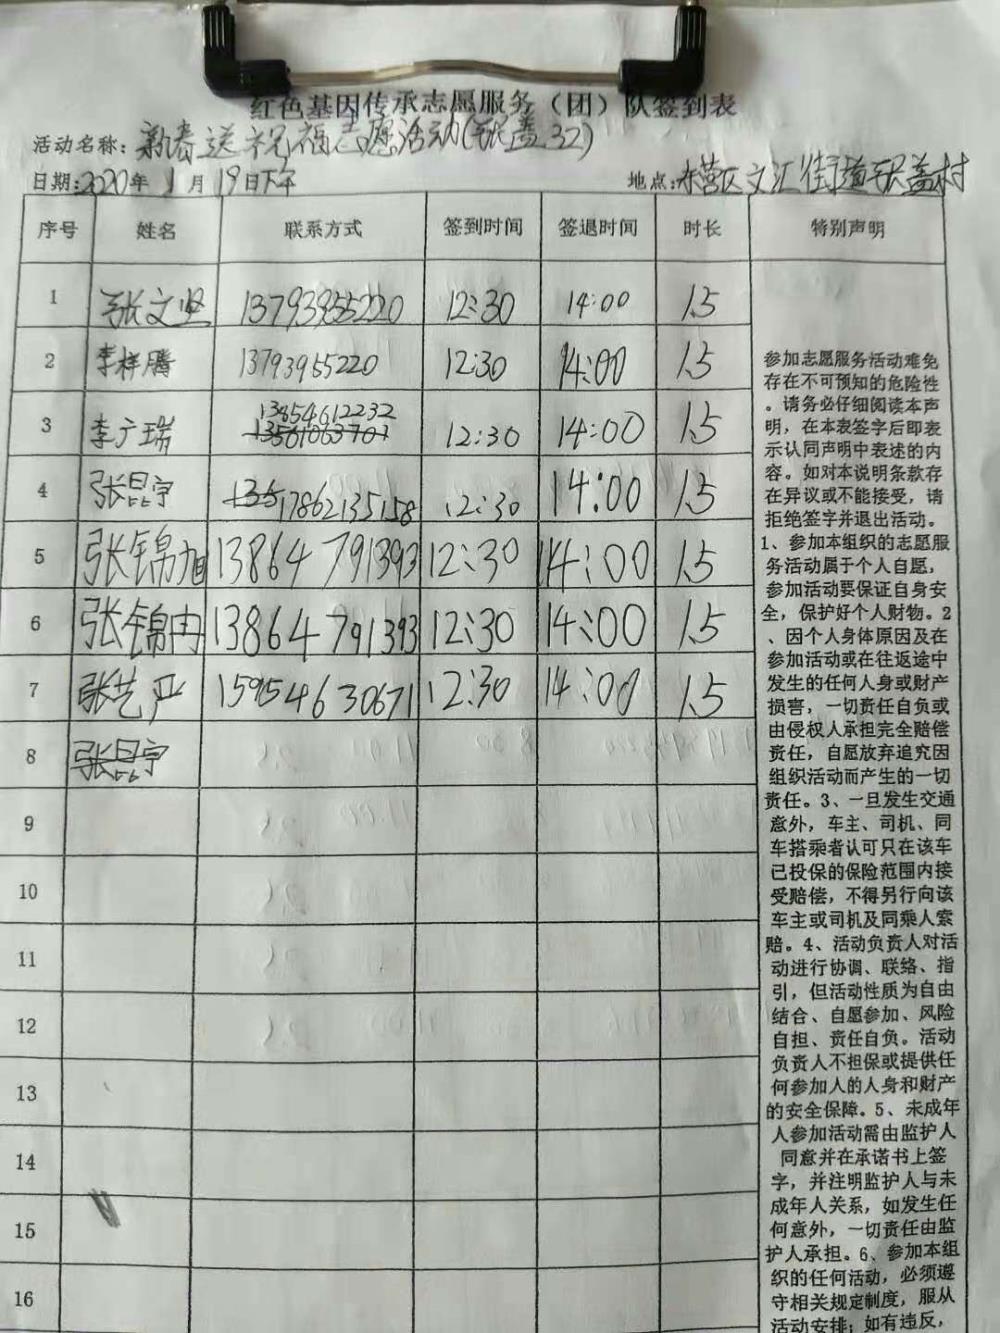 红色基因传承志愿服务（团）队签到表
活动名称：新春送祝福志愿活动(张盖32)
日期：2020年1月19日下午 地点：东营区文汇街道张盖村
序号 姓名 联系方式 签到时间 签退时间 时长 特别声明
1 张文坚 13793955220 12:30 14:00 1.5
2 李祥腾 13793955220 12:30 14:00 1.5
3 李广瑞 13854612232 12:30 14:00 1.5
13561063701
4 张昆宇 135 17862135158 12:30 14:00 1.5
5 张锦旭 13864791393 12:30 14:00 1.5
6 张锦冉 13864791393 12:30 14:00 1.5
7 张艺严 15954630671 12:30 14:00 1.5
8 张昆宇
9
10
11
12
13
14
15
16
参加志愿服务活动难免
存在不可预知的危险性
。请务必仔细阅读本声
明，在本表签字后即表
示认同声明中表述的内
容。如对本说明条款存
在异议或不能接受，请
拒绝签字并退出活动。
1、参加本组织的志愿服
务活动属于个人自愿，
参加活动要保证自身安
全，保护好个人财物。2
、因个人身体原因及在
参加活动或在往返途中
发生的任何人身或财产
损害，一切责任自负或
由侵权人承担完全赔偿
责任，自愿放弃追究因
组织活动而产生的一切
责任。3、一旦发生交通
意外，车主、司机、同
车搭乘者认可只在该车
已投保的保险范围内接
受赔偿，不得另行向该
车主或司机及同乘人索
赔。4、活动负责人对活
动进行协调、联络、指
引，但活动性质为自由
结合、自愿参加、风险
自担、责任自负。活动
负责人不担保或提供任
何参加人的人身和财产
的安全保障。5、未成年
人参加活动需由监护人
同意并在承诺书上签
字，并注明监护人与未
成年人关系，如发生任
何意外，一切责任由监
护人承担。6、参加本组
织的任何活动，必须遵
守相关规定制度，服从
活动安排；如有违反，